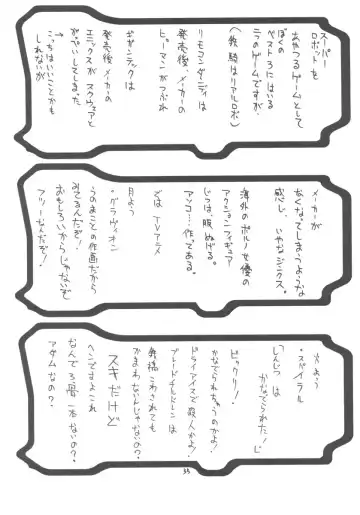 スーパー
ロボットを
あやつるゲームとして
ぼくの
ベスト3にはいる
二つのゲームですが、
(鉄騎はリアルロボ)
リモコンダンディは
発売後メーカーの
ヒューマンがつぶれ
ギガンテックは
発売後、メーカーの
エニックスが スクウェアと
がっぺいしてしまった
→
こっちはいいことかも
しれないが
メーカーが
なくなってしまうような
感じ、いやなジンクス。
海外のポルノ女優の
アクションフィギュア
じつは、服ぬげる。
アッコー作である。
では、TVアニメ
月よう
・グラヴィオン
うのまことの作画だから
みてるんだぞ!
おもしろいからじゃないぞ
フリーなんだぞ!
火よう
・スパイラル
「しんじつは
かなでられた!」
かなでられちゃうのかよ!
ビックリ!
ドライアイスで殺人かよ!
ブレードチルドレンは
発病こわされても
かまわないんじゃないの?
スキだけど
ヘンですよこれ
なんでろっ骨一本ないの?
アダムなの?
35